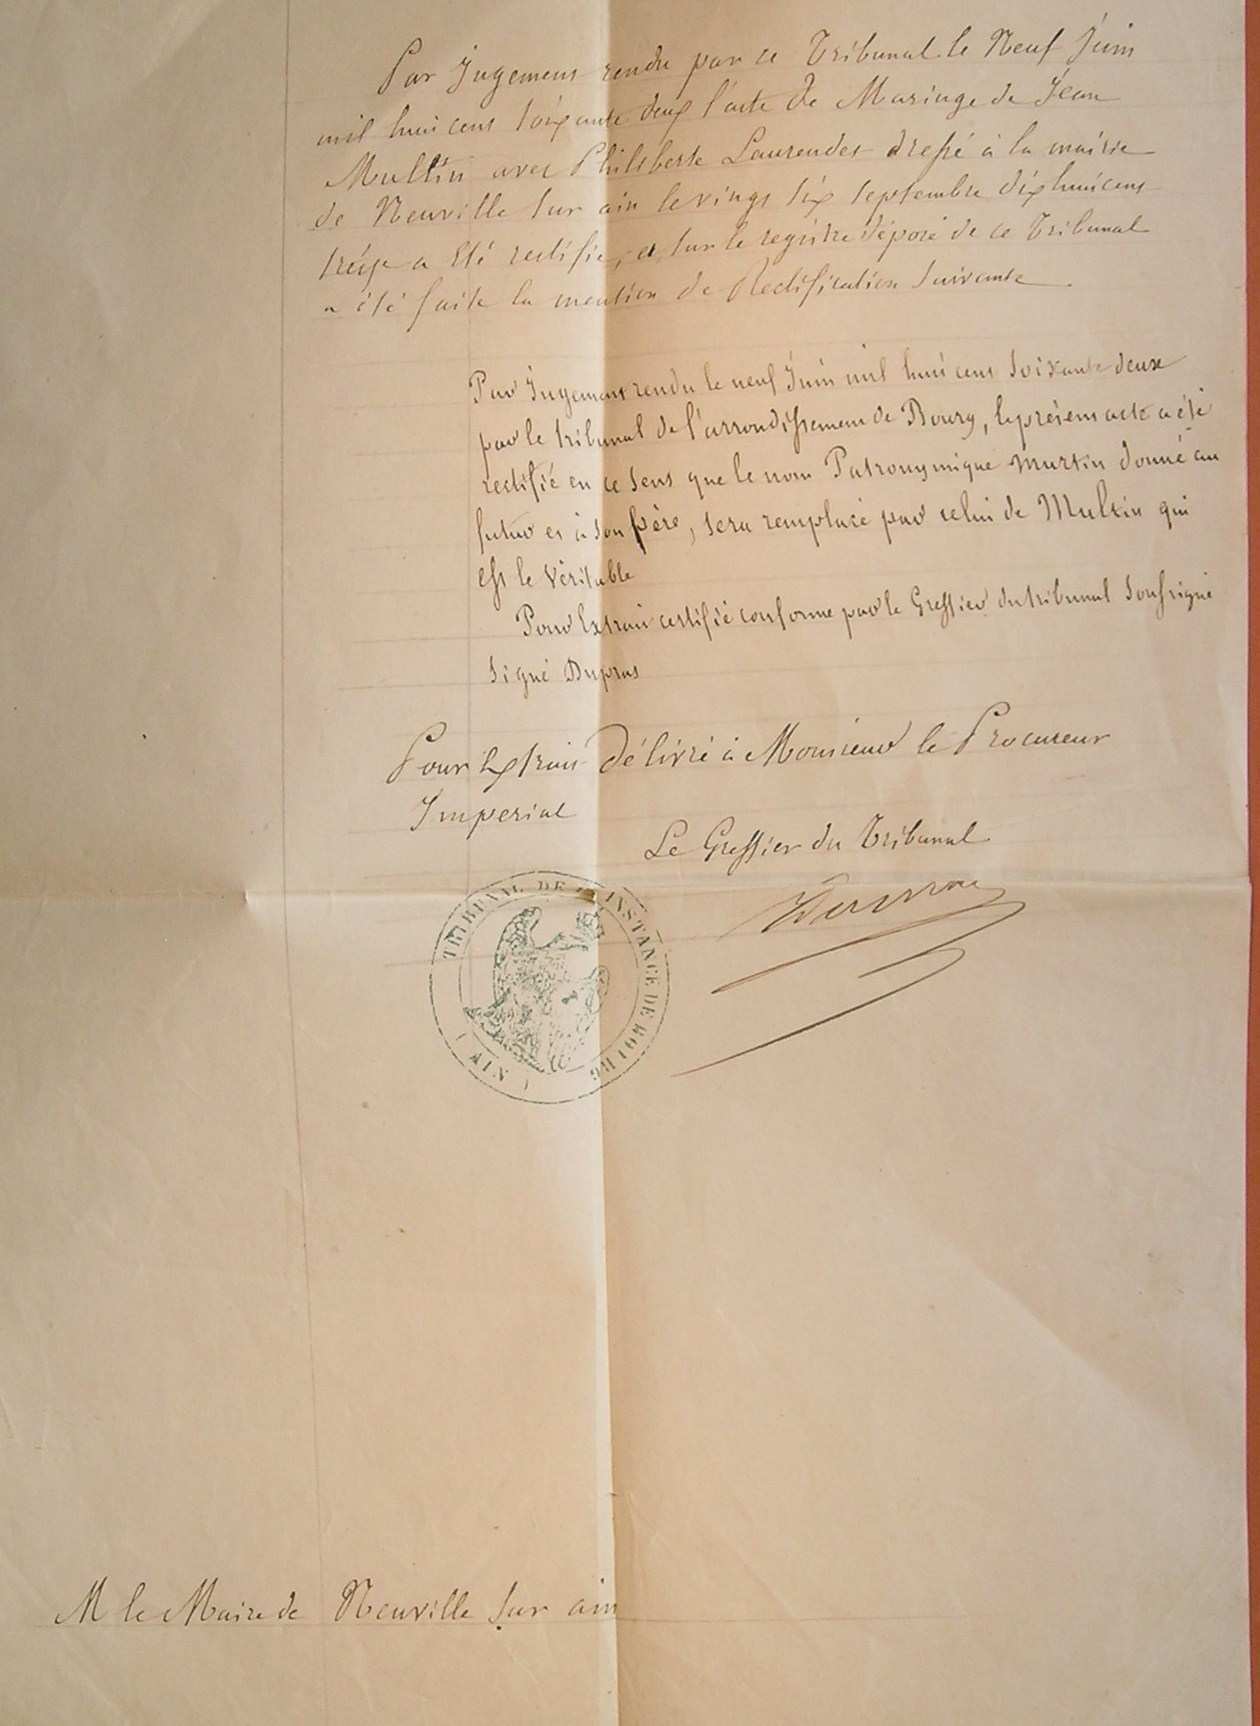 Par Jugement rendu par ce Tribunal le Neuf Juin
mil huit cent soixante deux l'acte de Mariage de Jean
Multin avec Philiberte Laurendet dressé à la mairie
de Neuville sur ain le vingt six septembre dix huit cent
treize a été rectifié, et sur le registre déposé de ce Tribunal
a été faite la mention de Rectification suivante.
Par Jugement rendu le neuf Juin mil huit cent soixante deux
par le tribunal de l'arrondissement de Bourg, le présent acte a été
rectifié en ce sens que le nom Patronymique Murtin donné au
futur et à son père, sera remplacé par celui de Multin qui
est le véritable
Pour Extrait certifié conforme par le Greffier du tribunal soussigné
Signé Dupras
Pour Extrait Délivré à Monsieur le Procureur
Imperial
Le Greffier du Tribunal
TRIBUNAL DE 1ère INSTANCE DE BOURG
( AIN )
M le Maire de Neuville sur ain